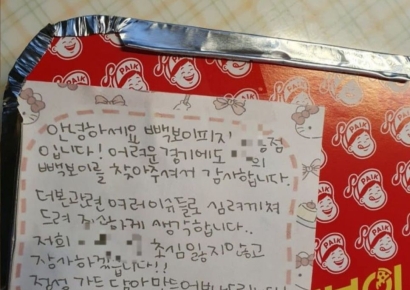 안녕하세요 빽보이피자 점
입니다! 어려운경기에도 의
빽보이를 찾아주셔서 감사합니다.
더본관련 여러이슈들로 심려끼쳐
드려 죄산하게 생각합니다..
저희 초심잃지않고
장사하겠습니다!!
정성 가득 담아
PAIK
PAIK
PAIK
PAIK
PAIK
PAIK